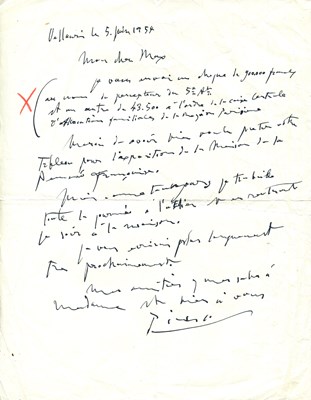 Vallauris le 5. juin 1954
Mon cher Max
je vous envoie un cheque de 90000 francs
au nom du percepteur du 5e Ar.
et un autre de 43.500 à l'ordre de la caisse centrale
d'allocations familiales de la region parisienne
Merci de avoir bien voulu preter votre
tableau pour l'exposition de la Maison de la
Pensée française.
je travaille
toute la journée à l'atelier
le soir à la maison.
Je vous écrirai plus longuement
tres prochainement.
Mes amitiés y mes saluts à
madame et bien à vous
Picasso